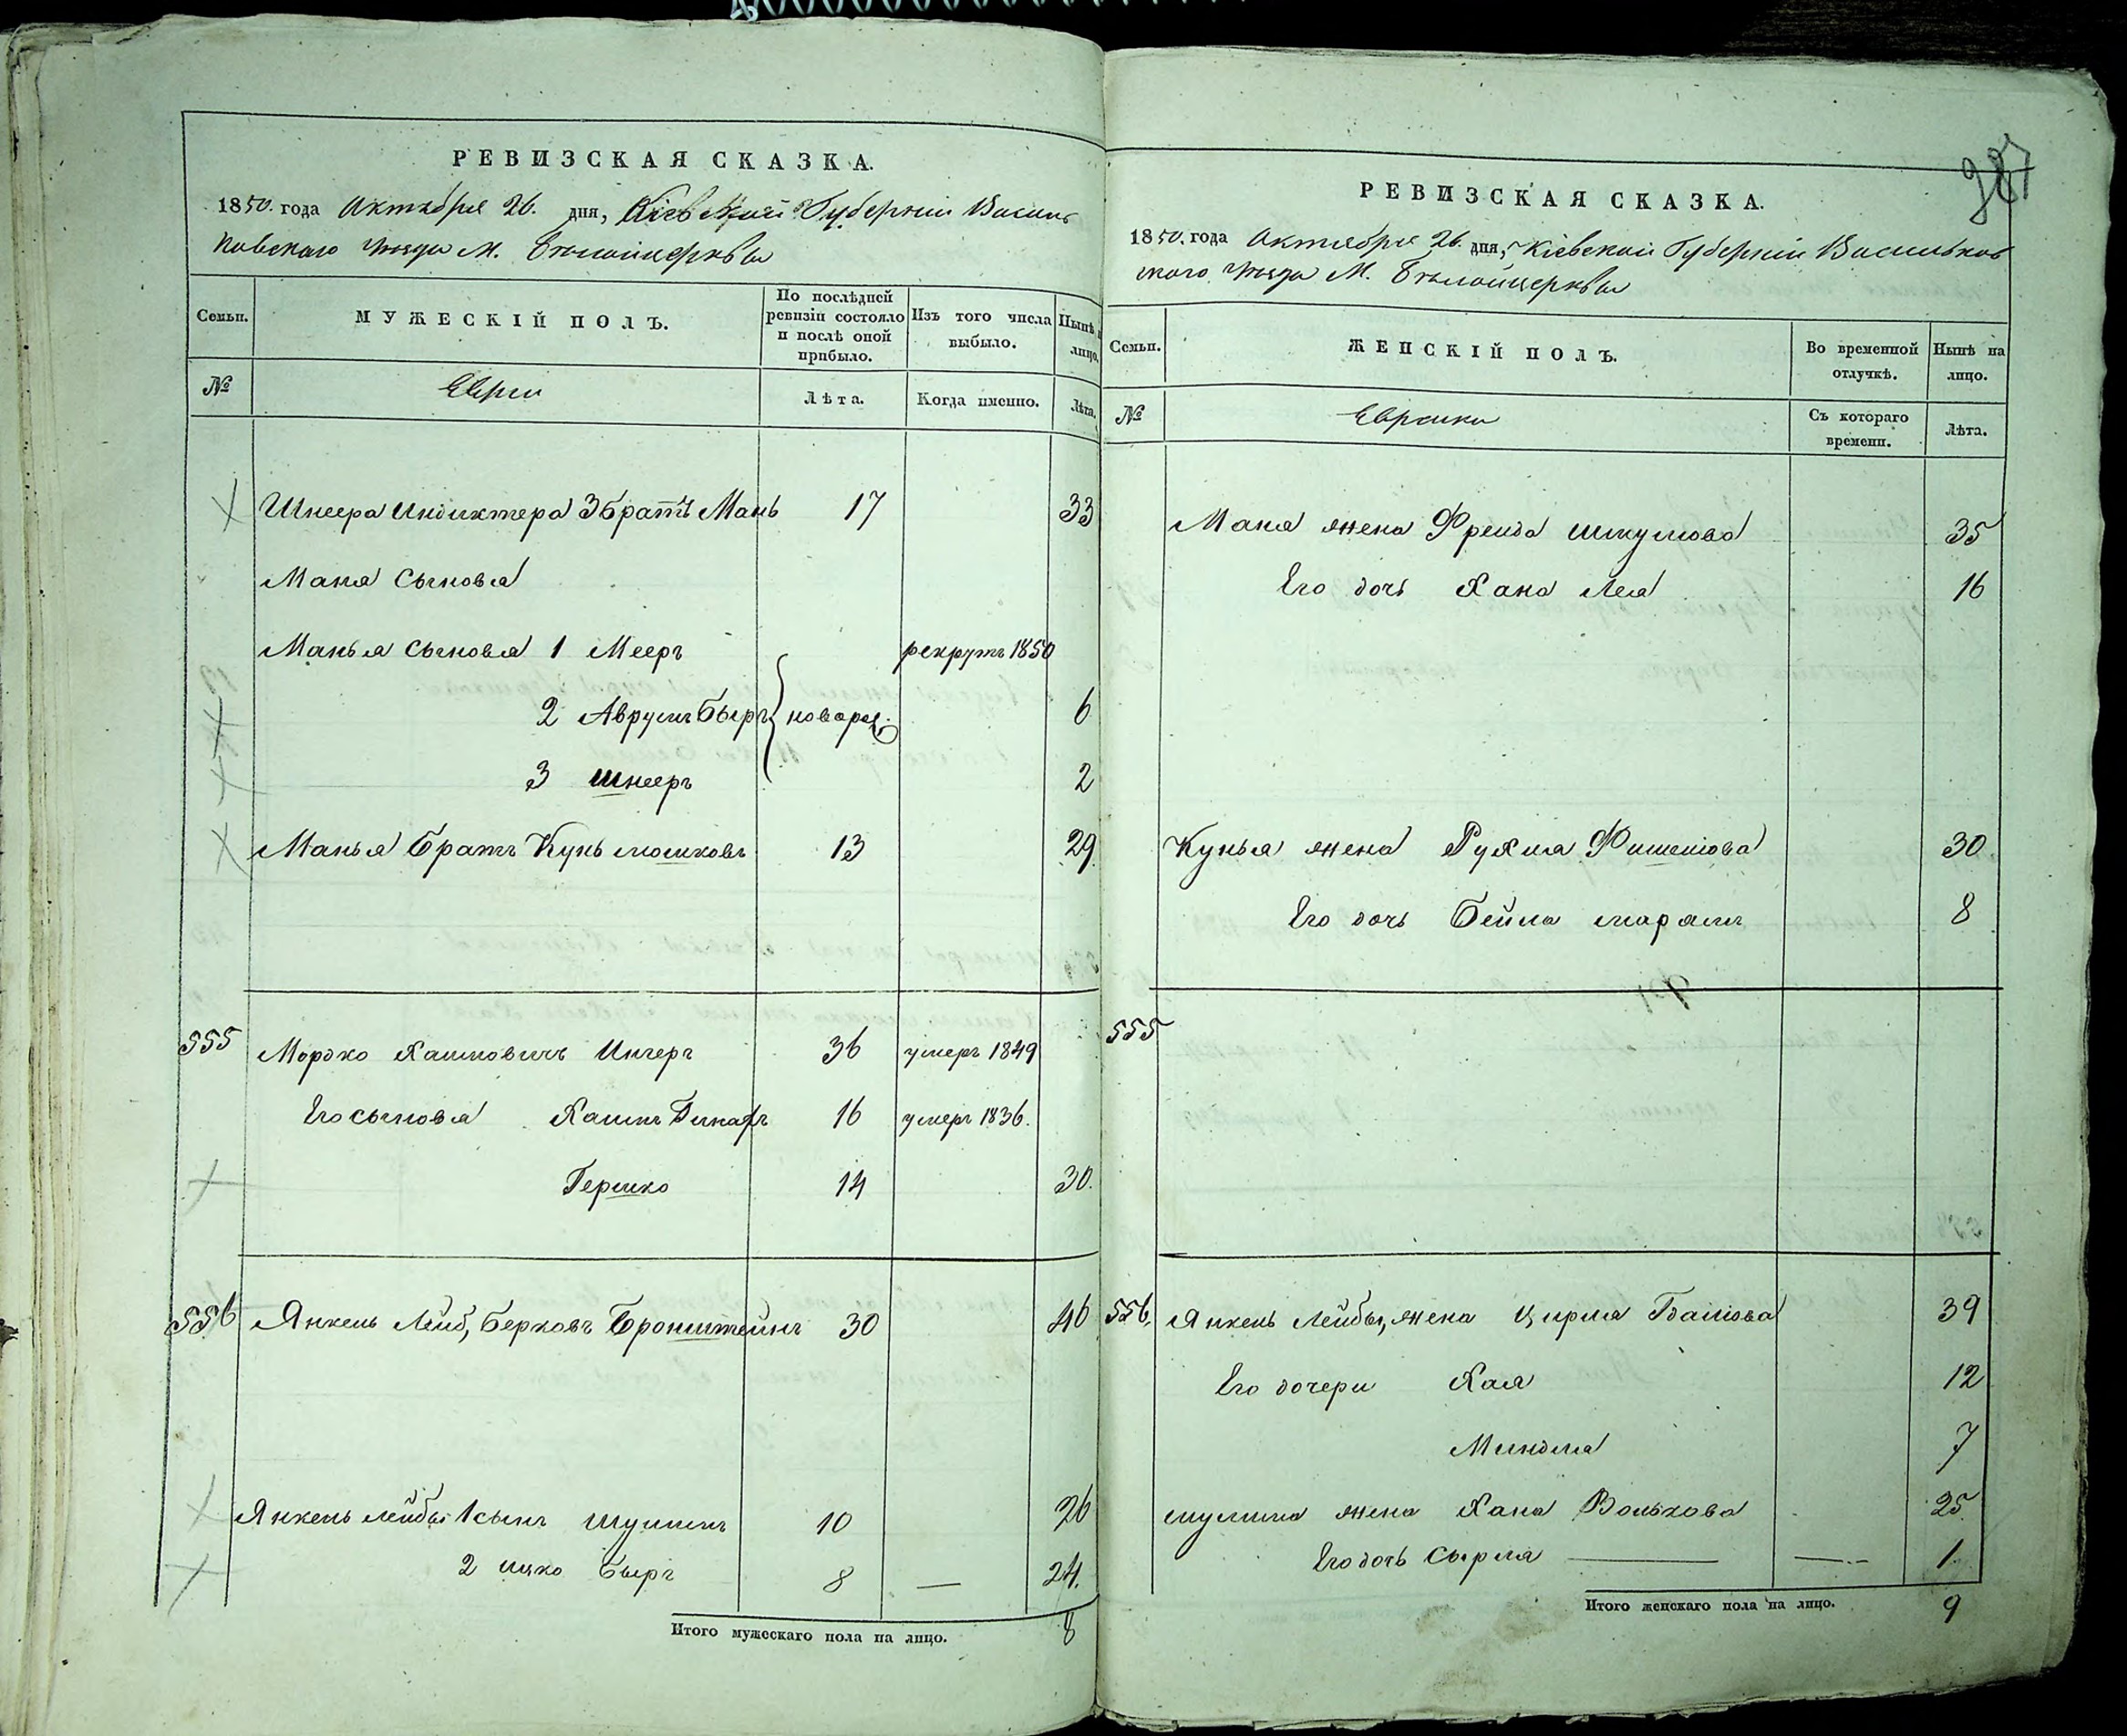 РЕВИЗСКАЯ СКАЗКА.
1850. года Октября 26. дня, Кіевской Губерніи Василь
ковскаго уѣзда М. Бѣлойцерквы
Семьи.
МУЖЕСКІЙ ПОЛЪ.
По послѣдней ревизіи состояло и послѣ оной прибыло.
Изъ того числа выбыло.
Нынѣ лицо.
№
Евреи
Лѣта.
Когда именно.
Лѣта.
Шнеера Индиктера 3 братъ Мань 17 33
Маня Сыновья
Манья Сыновья 1 Мееръ рекрутъ 1850
2 Аврумъ Беръ новорож. 6
3 Шнееръ 2
Манья братъ Кунь мошковъ 13 29
555 Мордко Хаимовичъ Ингеръ 36 умеръ 1849
Его сыновья Хаимъ 16 умеръ 1836.
Гершко 14 30.
556 Янкель Лейб, Берковъ Бронштейнъ 30 46
Янкель Лейбы 1 сынъ шулимъ 10 26
2 ицко Беръ 8 — 24.
Итого мужескаго пола на лицо. 8
387
РЕВИЗСКАЯ СКАЗКА.
1850. года Октября 26. дня, Кіевской Губерніи Васильков
скаго уѣзда М. Бѣлойцерквы
Семьи.
ЖЕНСКІЙ ПОЛЪ.
Во временной отлучкѣ.
Нынѣ на лицо.
№
Еврейки
Съ котораго времени.
Лѣта.
Маня жена Фрейда шмулова 35
Его дочь Хана Лея 16
Кунья жена Рухля Фишелова 30
Его дочь Бейла марьямъ 8
555
556. Янкель Лейбы, жена Цирля 39
Его дочери Хая 12
Миндля 7
шулима жена Хана Волькова 25
Его дочь Сырля — — 1.
Итого женскаго пола на лицо. 9